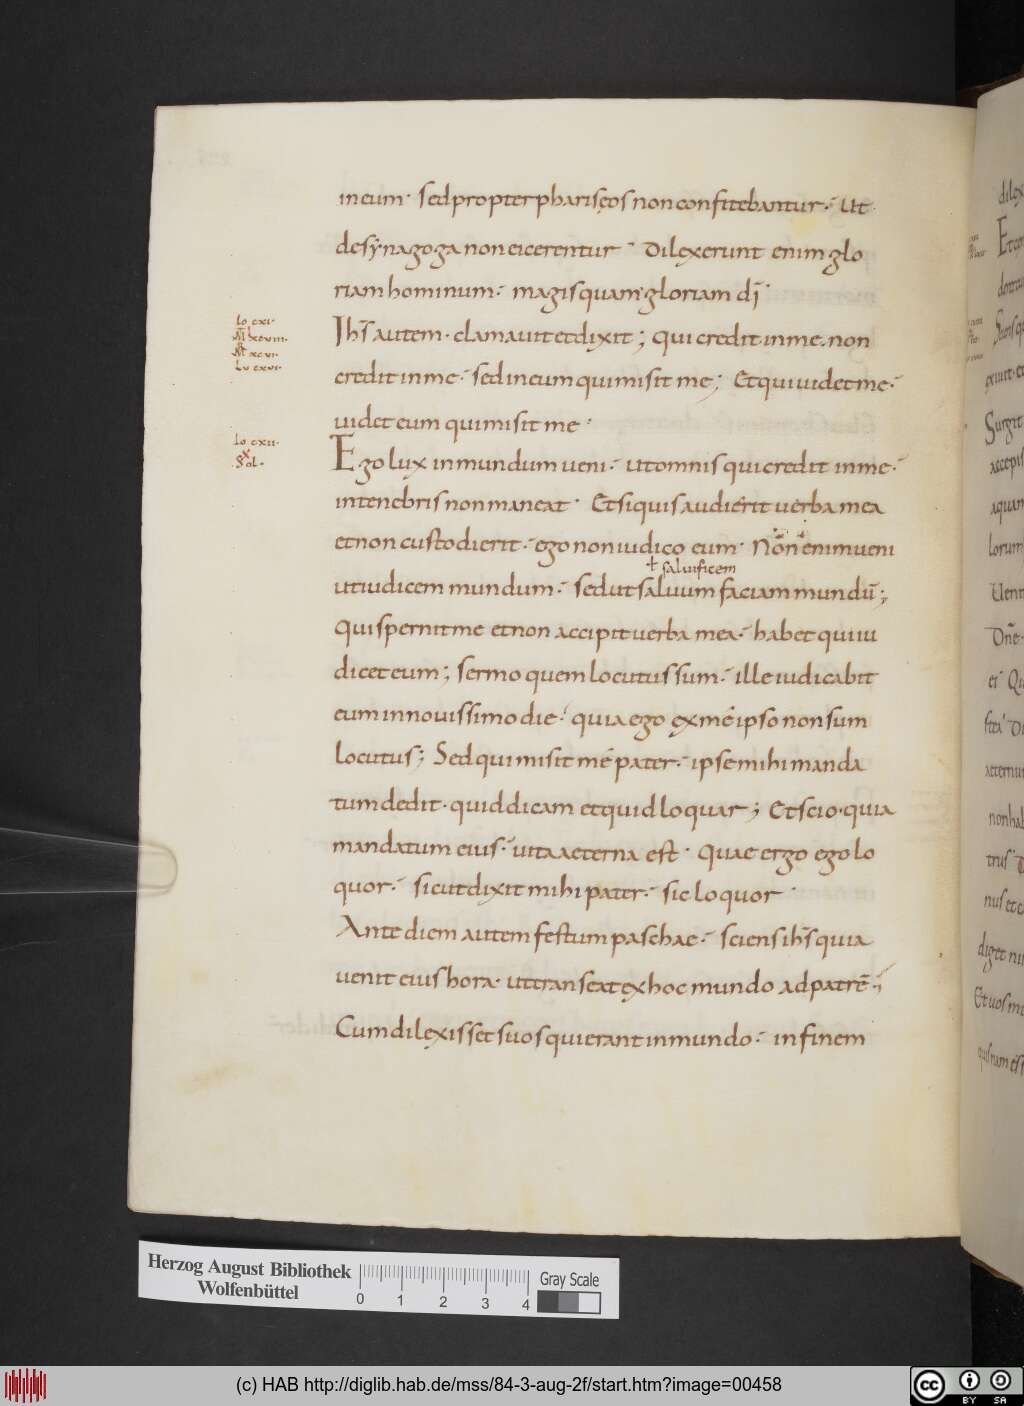 in eum · sed propter phariseos non confitebantur · ut
de synagoga non eicerentur · dilexerunt enim glo
riam hominum · magis quam gloriam d̄i ·
Io cxi ·
M̄ xcviii ·
Mt xcvi ·
Lu cxvi ·
Ih̄s autem · clamavit et dixit ; Qui credit in me · non
credit in me · sed in eum qui misit me ; Et qui videt me ·
videt eum qui misit me ·
Io cxii ·
x
Sol ·
Ego lux in mundum veni · ut omnis qui credit in me ·
in tenebris non maneat · Et si quis audierit verba mea
et non custodierit · ego non iudico eum · Non enim veni
ł salvificem
ut iudicem mundum · sed ut salvum faciam mundū ;
Qui spernit me et non accipit verba mea · habet qui iu
dicet eum ; sermo quem locutus sum · ille iudicabit
eum in novissimo die · quia ego ex me ipso non sum
locutus ; Sed qui misit me pater · ipse mihi manda
tum dedit · quid dicam et quid loquar ; Et scio · quia
mandatum eius · vita aeterna est · Quae ergo ego lo
quor · sicut dixit mihi pater · sic loquor ·
Ante diem autem festum paschae · sciens ih̄s quia
venit eius hora · ut transeat ex hoc mundo ad patrē ;
Cum dilexisset suos qui erant in mundo · in finem
dilex
Surgit
accepis
aquam
lorum
Ueni
Dn̄e ·
ei · Qu
aeternum
non hab
nus et e
Et vos mu
Herzog August Bibliothek
Wolfenbüttel
0 1 2 3 4
Gray Scale
(c) HAB http://diglib.hab.de/mss/84-3-aug-2f/start.htm?image=00458
cc BY SA